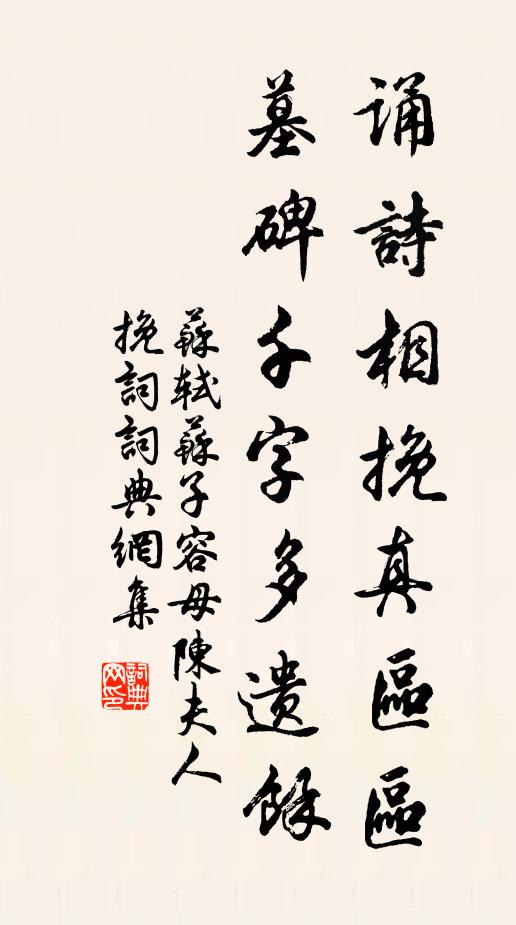 诵詩相挽真區區
墓碑千字多遗餘
蘇轼蘇子容母陳夫人
挽詞詞典網集
詞典
网印